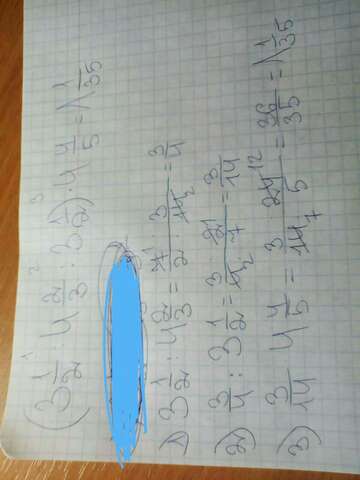 (3 1/2 : 4 2/3 : 3 1/2) · 4 4/5 = 1 1/35
1) 3 1/2 : 4 2/3 = 7/2 · 3/14 = 3/4
2) 3/4 : 3 1/2 = 3/4 · 2/7 = 3/14
3) 3/14 4 4/5 = 3/14 · 24/5 = 36/35 = 1 1/35